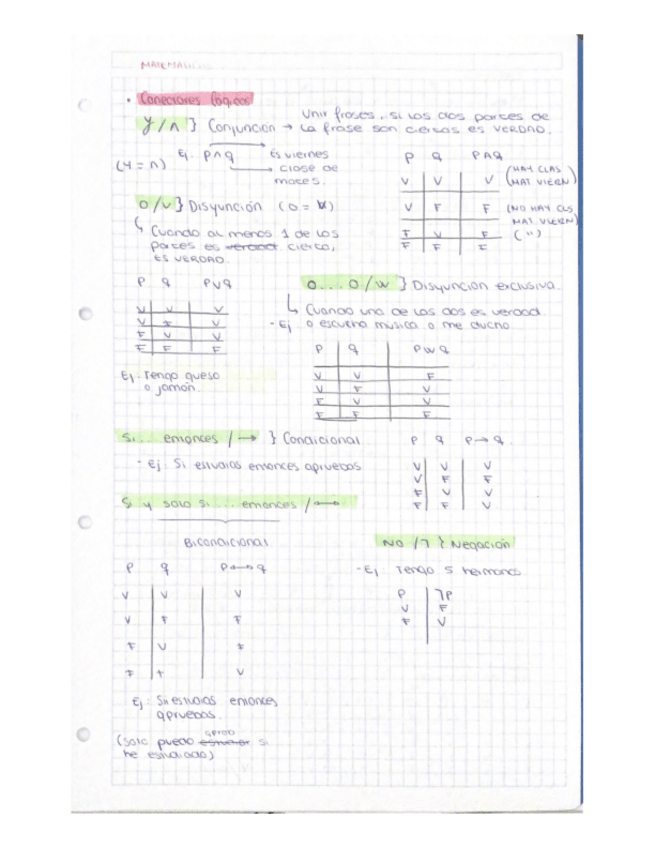 • Conectores lógicos
Unir frases, si los dos partes de
Y/∧ } Conjunción → la frase son ciertas es VERDAD.
Ej. P∧q
Es viernes
(Y = ∧)
clase de
mates.
P q P∧q
V V V (HAY CLAS MAT VIERN)
V F F (NO HAY CLS MAT VIERN)
F V F (")
F F F
O/V } Disyunción (O = V)
Cuando al menos 1 de las
partes es verdad cierta,
ES VERDAD
P q P∨q
V V V
V F V
F V V
F F F
Ej. Tengo queso
o jamón.
O...O/W } Disyunción exclusiva.
Cuando una de las dos es verdad.
- Ej o escucho música o me ducho
P q P w q
V V F
V F V
F V V
F F F
Si... entonces / → } Condicional
- Ej: Si estudias entonces apruebas
P q P→q
V V V
V F F
F V V
F F V
Si y solo si... entonces / ↔
Bicondicional
P q P↔q
V V V
V F F
F V F
F F V
Ej: Si estudias entonces
apruebas.
(solo puedo aprob estudiar si
he estudiado)
NO /7 } Negación
- Ej Tengo 5 hermanos
P 7P
V F
F V